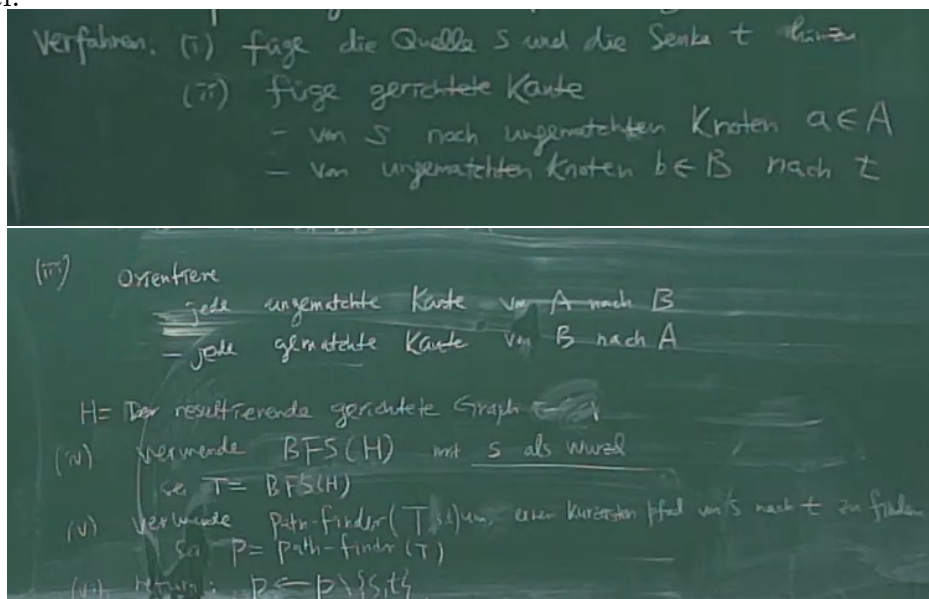 er.
Verfahren: (i) füge die Quelle s und die Senke t hinzu
(ii) füge gerichtete Kante
- von s nach ungematchten Knoten a ∈ A
- von ungematchten Knoten b ∈ B nach t
(iii) Orientiere
- jede ungematchte Kante von A nach B
- jede gematchte Kante von B nach A
H= Der resultierende gerichtete Graph
(iv) verwende BFS(H) mit s als wurzel
sei T = BFS(H)
(v) verwende path-finder(T,s,t) um einen kürzesten pfad von s nach t zu finden
sei p = path-finder(T)
(vi) return: p ← p \ {s,t}